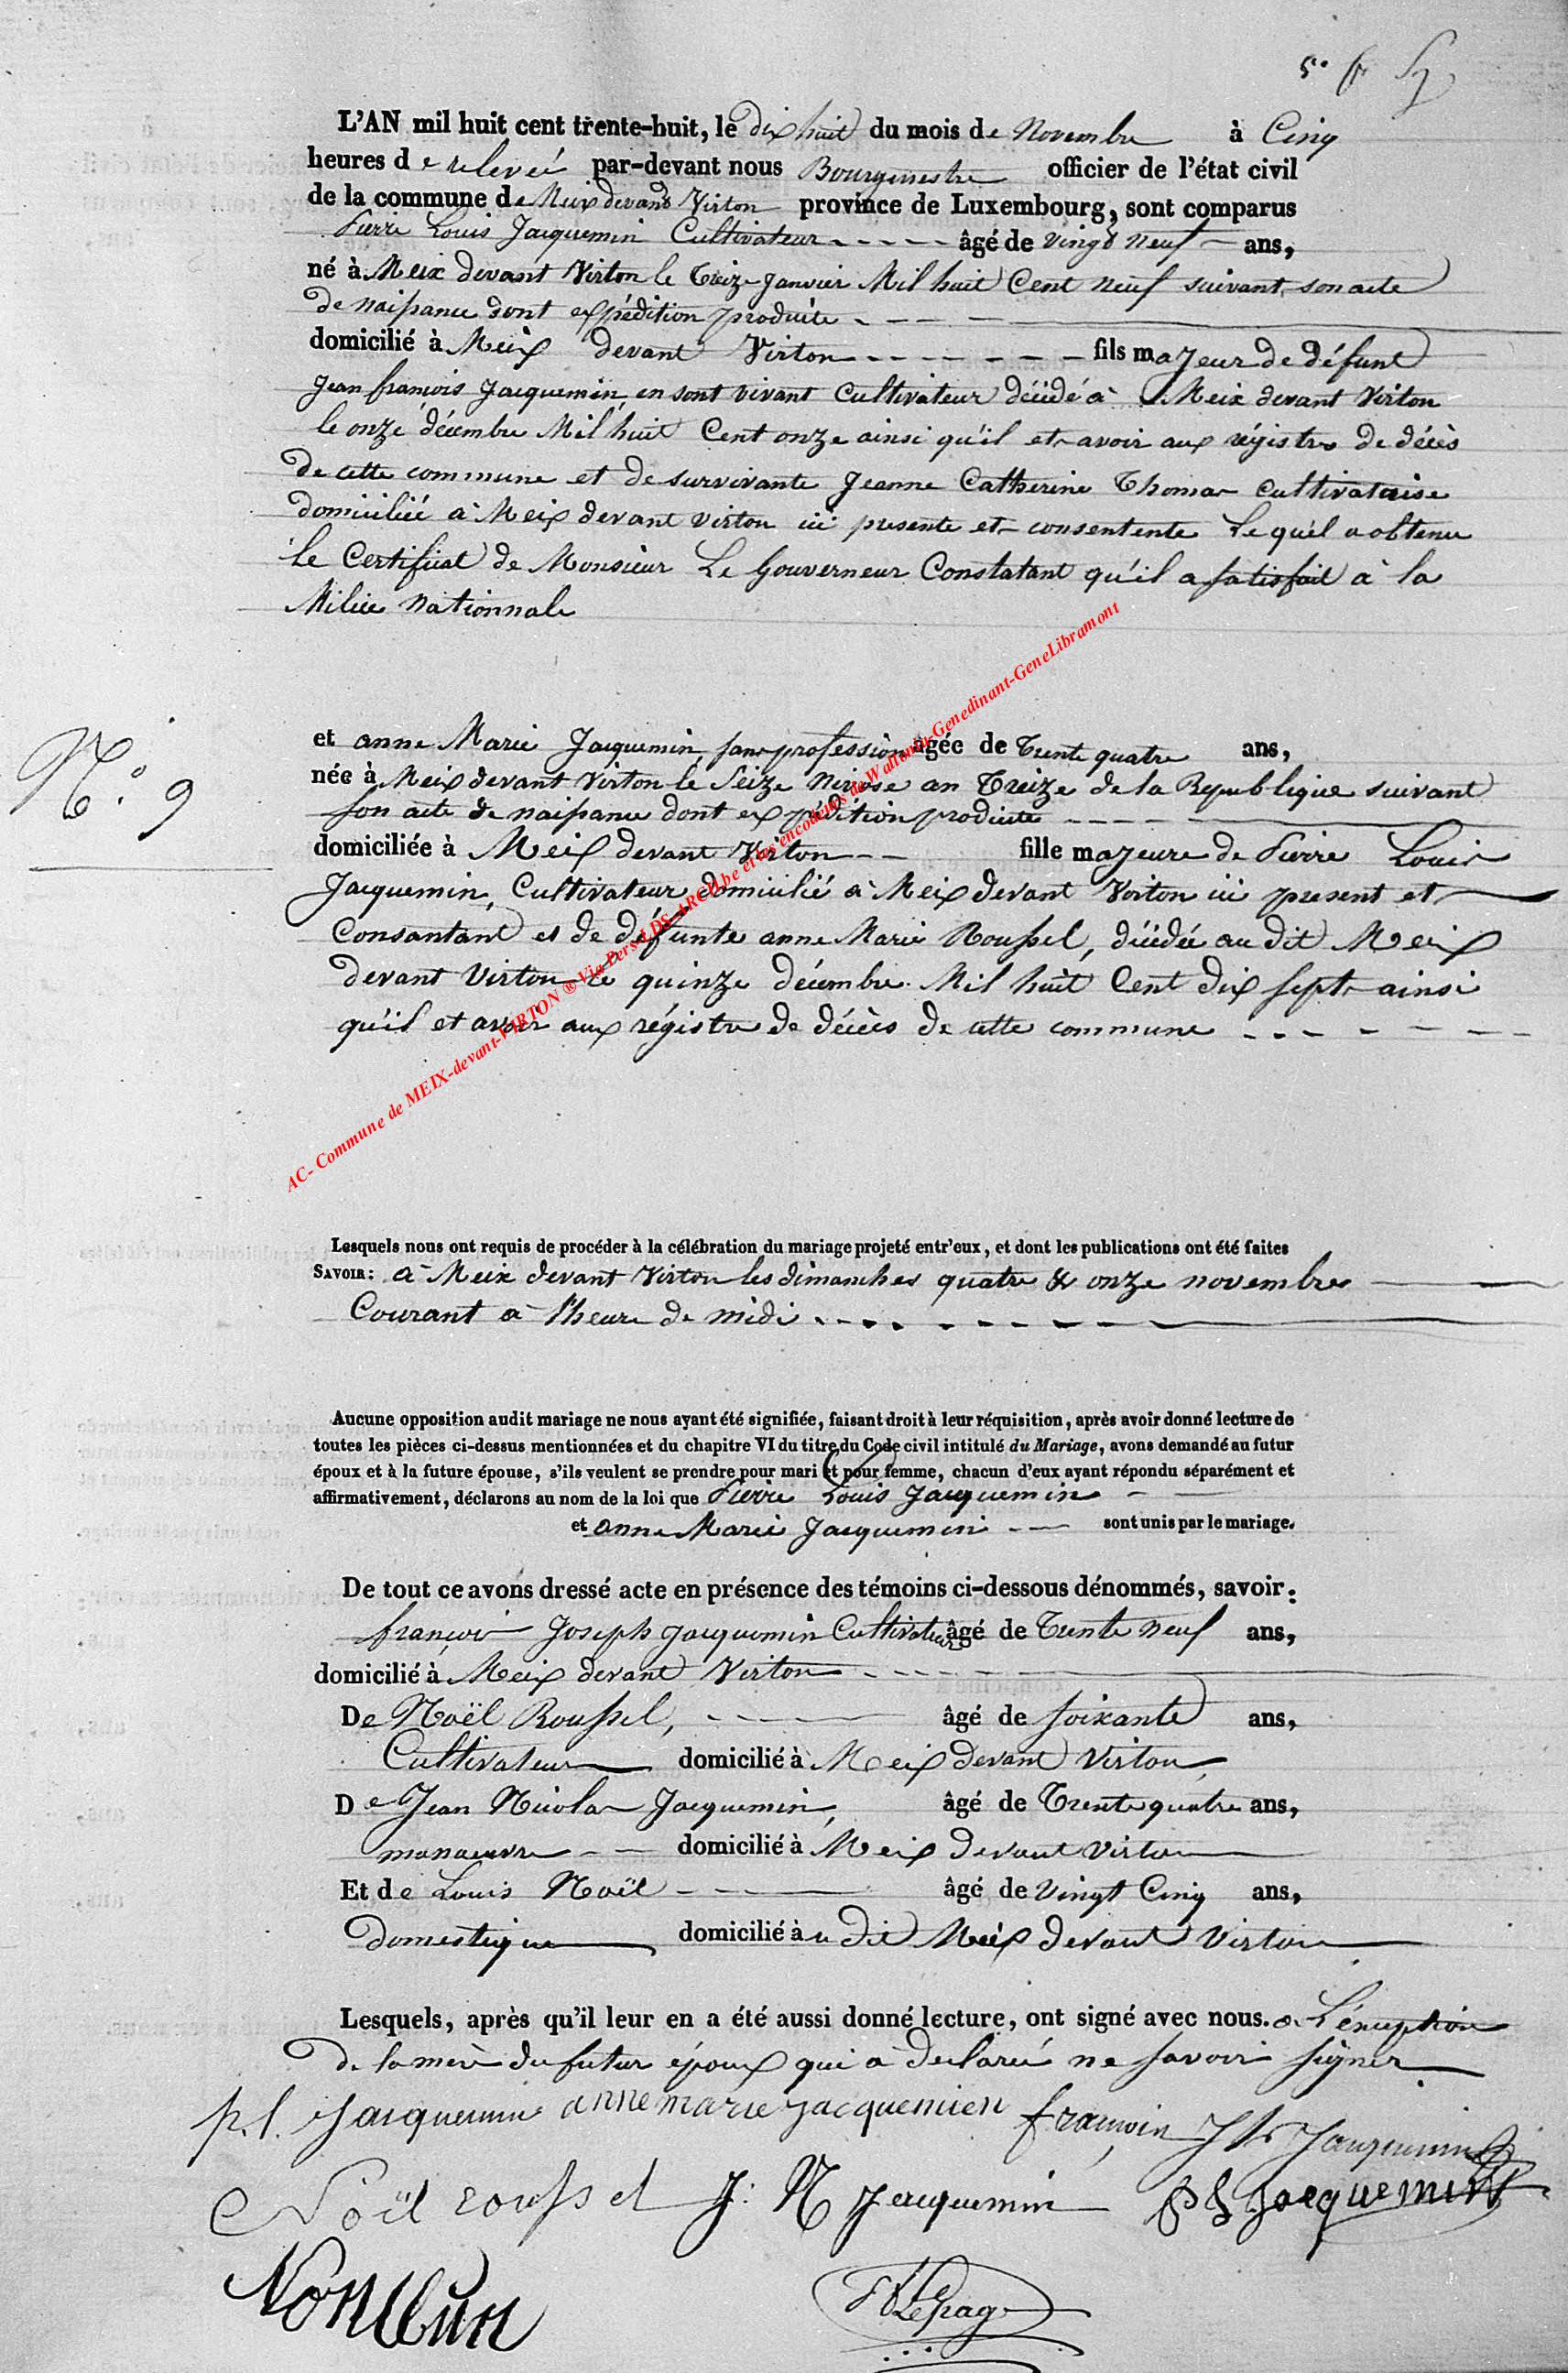 5. f.
L'AN mil huit cent trente-huit, le dix huit du mois de Novembre à Cinq
heures de relevéé par-devant nous Bourgmestre officier de l'état civil
de la commune de Meix devant Virton province de Luxembourg, sont comparus
Pierre Louis Jacquemin Cultivateur âgé de vingt neuf ans,
né à Meix devant Virton le treize Janvier Mil huit Cent neuf suivant son acte
de naissance dont expédition produite
domicilié à Meix devant Virton fils majeur de défunt
Jean françois Jacquemin, en sont vivant Cultivateur décédé à Meix devant Virton
le onze décembre Mil huit Cent onze ainsi qu'il et avoir aux régistres de décès
de cette commune et de survivante Jeanne Catherine Thomas Cultivatrise
domiciliéé à Meix devant virton ici presente et consentente Le quel a obtenu
le Certificat de Monsieur Le Gouverneur Constatant qu'il a satisfait à la
Milice nationnale
et anne Marie Jacquemin, sans profession agée de trente quatre ans,
N.° 9
née à Meix devant Virton le Seize Nivose an treize de la Republique suivant
son acte de naissance dont expédition produite
domiciliée à Meix devant Virton fille majeure de Pierre Louis
Jacquemin, Cultivateur domicilié à Meix devant Virton ici present et
Consantant et de défunte anne Marie Roussel, décédée au dit Meix
devant Virton le quinze décembre Mil huit Cent dix sept ainsi
qu'il et avoir aux régistre de décès de cette commune
AC- Commune de MEIX-devant-VIRTON ® Via Pers-LDS-ARCH.be et les encodeurs de Wallonia-Genedinant-GeneLibramont
Lesquels nous ont requis de procéder à la célébration du mariage projeté entr'eux, et dont les publications ont été faites
SAVOIR: à Meix devant Virton les dimanches quatre & onze novembre
Courant à l'heure de midi
Aucune opposition audit mariage ne nous ayant été signifiée, faisant droit à leur réquisition, après avoir donné lecture de
toutes les pièces ci-dessus mentionnées et du chapitre VI du titre du Code civil intitulé du Mariage, avons demandé au futur
époux et à la future épouse, s'ils veulent se prendre pour mari et pour femme, chacun d'eux ayant répondu séparément et
affirmativement, déclarons au nom de la loi que Pierre Louis Jacquemin
et anne Marie Jacquemin sont unis par le mariage.
De tout ce avons dressé acte en présence des témoins ci-dessous dénommés, savoir:
françois Joseph Jacquemin Cultivateur âgé de trente neuf ans,
domicilié à Meix devant Virton
De Noël Roussel, âgé de soixante ans,
Cultivateur domicilié à Meix devant Virton,
De Jean Nicolas Jacquemin, âgé de trente quatre ans,
manœuvre domicilié à Meix devant Virton
Et de Louis Noël âgé de vingt Cinq ans,
Domestique domicilié au dit Meix devant Virton
Lesquels, après qu'il leur en a été aussi donné lecture, ont signé avec nous. à L'éxception
de la mère du futur époux qui a declaréé ne savoir signer
p. l. Jacquemin anne marie jacquemien françois Jh Jacquemin
Noël roussel J: N Jacquemin P L Jacquemin
L Noël
Lepage